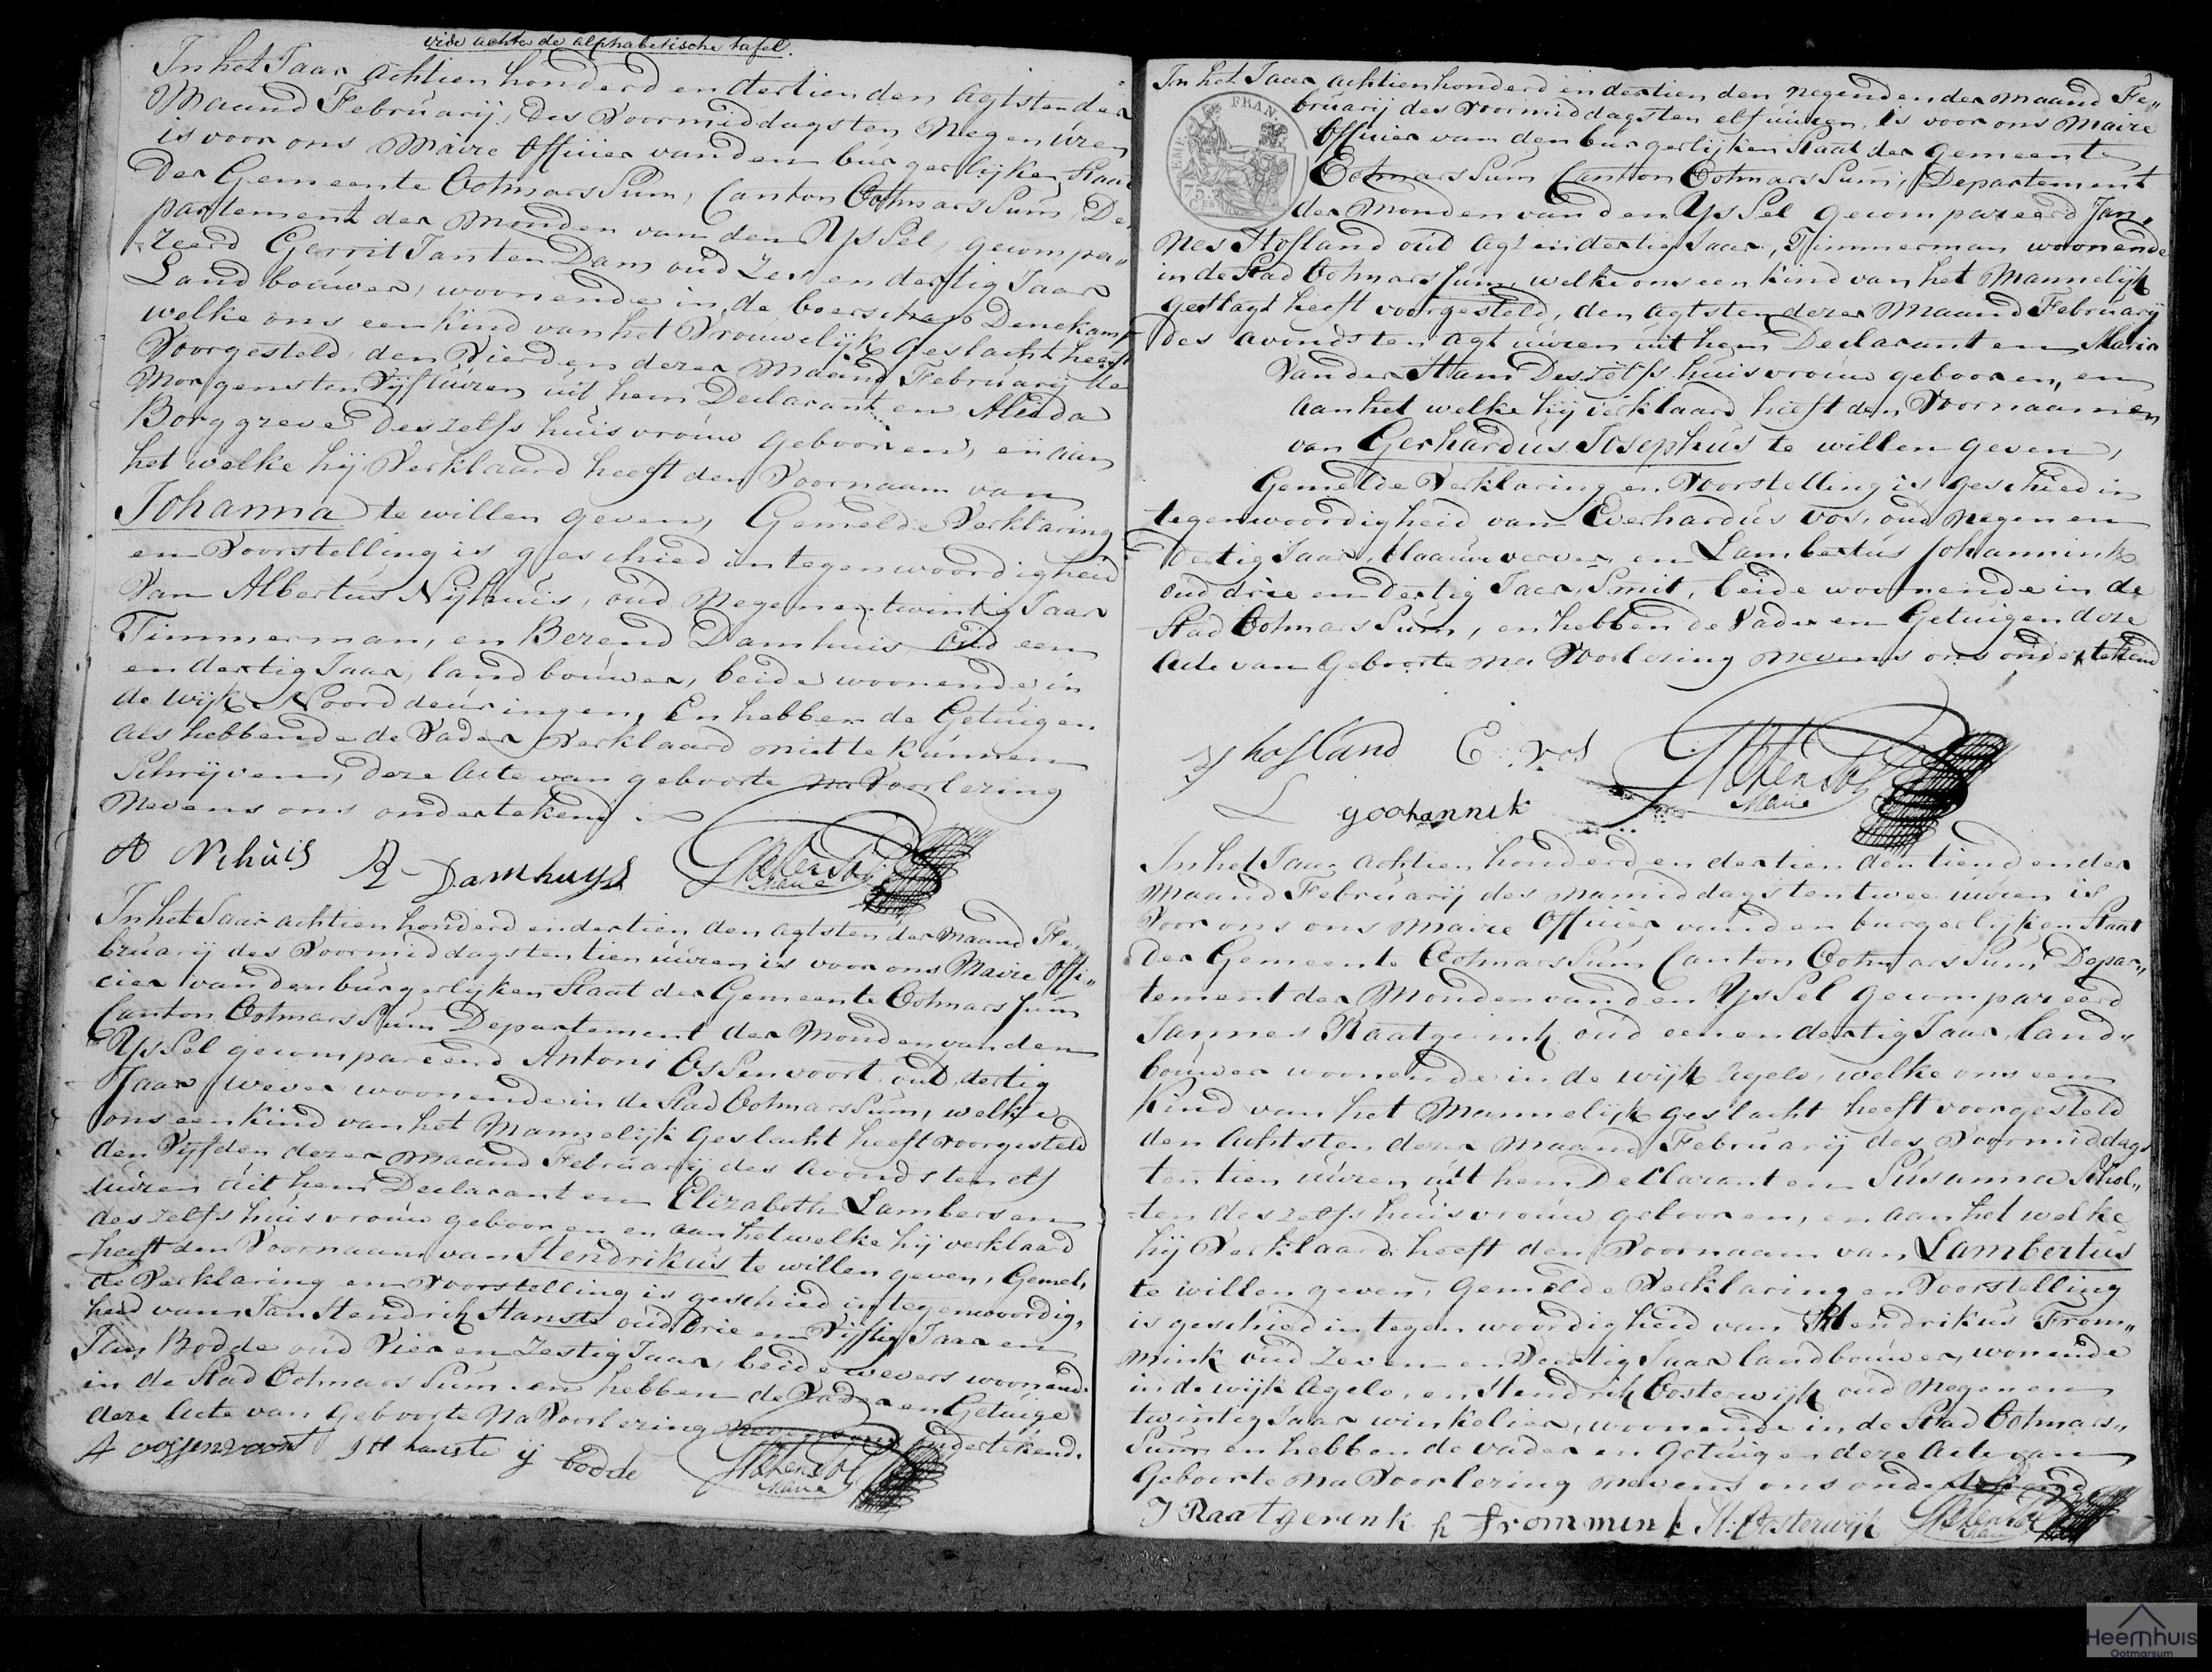 vide achter de alphabetische tafel.
In het Jaar achtien honderd en dertien den agtsten der
Maand Februarij, des Voormiddags ten Negen uren
is voor ons Maire Officier van den burgerlijken Staat
Der Gemeente Ootmarssum, Canton Ootmarssum, De-
partement der Monden van den Yssel, gecompa"
reerd Gerrit Jan ten Dam oud Zes en dertig Jaar
Landbouwer, woonende in de boerschap Denekamp
welke ons een kind van het Vrouwelijk geslacht heeft
Voorgesteld, den Vierden dezer Maand Februarij des
Morgens ten Vijf uuren uit hem Declarant en Aleida
Borggreve deszelfs huisvrouw gebooren, en aan
het welke hij Verklaard heeft den Voornaam van
Johanna te willen geven, Gemelde Verklaring
en Voorstelling is geschied in tegenwoordigheid
Van Albertus Nijhuis, oud Negen en twintig Jaar
Timmerman, en Berend Damhuis oud een
en dertig Jaar, landbouwer, beide woonende in
de wijk Noorddeuringen, En hebben de Getuigen.
als hebbende de Vader Verklaard niet te kunnen
Schrijven, deze Acte van geboorte na Voorlezing
Nevens ons ondertekend
A Nehuis B Damhuys
Maire
In het Jaar achtien honderd en dertien den agtsten der Maand Fe-
bruarij des Voormiddags ten tien uuren is voor ons Maire Offi"
cier van den burgerlijken Staat der Gemeente Ootmarssum
Canton Ootmarssum Departement der Monden van den
Yssel gecompareerd Antoni Ossenvoort oud dertig
Jaar wever woonende in de Stad Ootmarssum, welke
ons een kind van het Mannelijk Geslacht heeft voorgesteld
den Vyfden dezer maand Februarij des Avonds ten elf
uuren uit hem Declarant en Elizabeth Lambersen
deszelfs huisvrouw gebooren en aan het welke hij verklaard
heeft den Voornaam van Hendrikus te willen geven, Gemel"
de Verklaring en Voorstelling is geschied in tegenwoordig"
heid van Jan Hendrik Hanste oud Drie en Vijftig Jaar en
Jan Bodde oud Vier en Zestig Jaar, beide wevers woonend
in de Stad Ootmarssum. en hebben de Vader en Getuige
deze Acte van Geboorte Na Voorlezing nevens ons ondertekend.
A oossenvoort J H hanste ij bodde
Maire
In het Jaar achtienhonderd en dertien den negenden der maand Fe"
EMP. FRAN.
75
bruarij des Voormiddags ten elf uuren, is voor ons Maire
Officier van den burgerlijken Staat der Gemeente
Ootmarssum Canton Ootmarssum, Departement
der Monden van den Yssel gecompareerd Jan"
nes Hofland oud Agt en dertig Jaar, Timmerman woonende
in de Stad Ootmarssum, welke ons een kind van het Mannelijk
geslagt heeft voorgesteld, den agtsten dezer Maand Februarij
des avonds ten agt uuren uit hem Declarant en Maria
Van der Ham Deszelfs huisvrouw gebooren, en
aan het welke hij verklaard heeft den Voornaamen
van Gerhardus Josephus te willen geven,
Gemelde Verklaring en Voorstelling is geschied in
tegenwoordigheid van Everhardus Vos, oud Negen en
Dertig Jaar, Blaauwverver, en Lambertus Johannink
oud drie en dertig Jaar, Smit, beide woonende in de
Stad Ootmarssum, en hebben de Vader en Getuigen deze
Acte van Geboorte na Voorlezing nevens ons ondertekend
J hofland E. vos
L goohannik
Maire
In het Jaar achtien honderd en dertien den tienden der
Maand Februarij des namiddags ten twee uuren is
Voor ons ons Maire Officier van den burgerlijken Staat
Der Gemeente Ootmarssum Canton Ootmarssum Depar"
tement der Monden van den Yssel gecompareerd
Jannes Raatgerink oud een en dertig Jaar, land"
bouwer woonende in de wijk Agelo, welke ons een
Kind van het Mannelijk geslacht heeft voorgesteld
den Achtsten dezer maand Februarij des Voormiddags
ten tien uuren uit hem Declarant en Susanna Schol"
ten deszelfs huisvrouw gebooren, en aan het welke
hij Verklaard heeft den Voornaam van Lambertus
te willen geven, Gemelde Verklaring en Voorstelling
is geschied in tegenwoordigheid van Hendrikus From"
mink oud Zeven en Veertig Jaar landbouwer, wonende
in de wijk Agelo, en Hendrik Oosterwijk oud Negen en
twintig Jaar winkelier, woonende in de Stad Ootmars"
sum en hebben de vader en Getuigen deze Acte van
Geboorte na Voorlezing nevens ons ondertekend
J Raatgerink h frommink H: Oosterwijk
Maire
Heemhuis
Ootmarsum